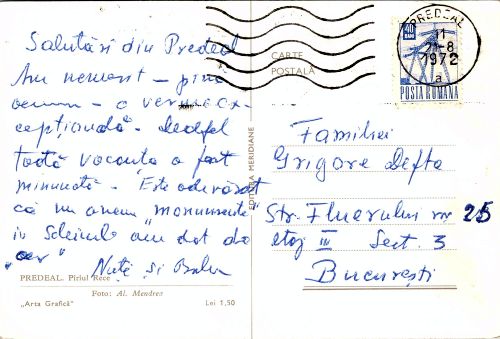 Salutări din Predeal
Am nemerit – pînă
acum – o vreme ex-
cepțională. Dealtfel
toată vacanța a fost
minunată. Este adevărat
că nu avem „monumente”
în schimb am dat de
„aer”
Nuți și
PREDEAL. Pîrîul Rece
Foto: Al. Mendrea
„Arta Grafică”
Lei 1,50
EDITURA MERIDIANE
CARTE
POSTALĂ
PREDEAL
11
21-8
1972
a
40
BANI
POSTA ROMANA
Familiei
Grigore Defta
Str. Fluerului nr 25
etaj III Sect. 3
București